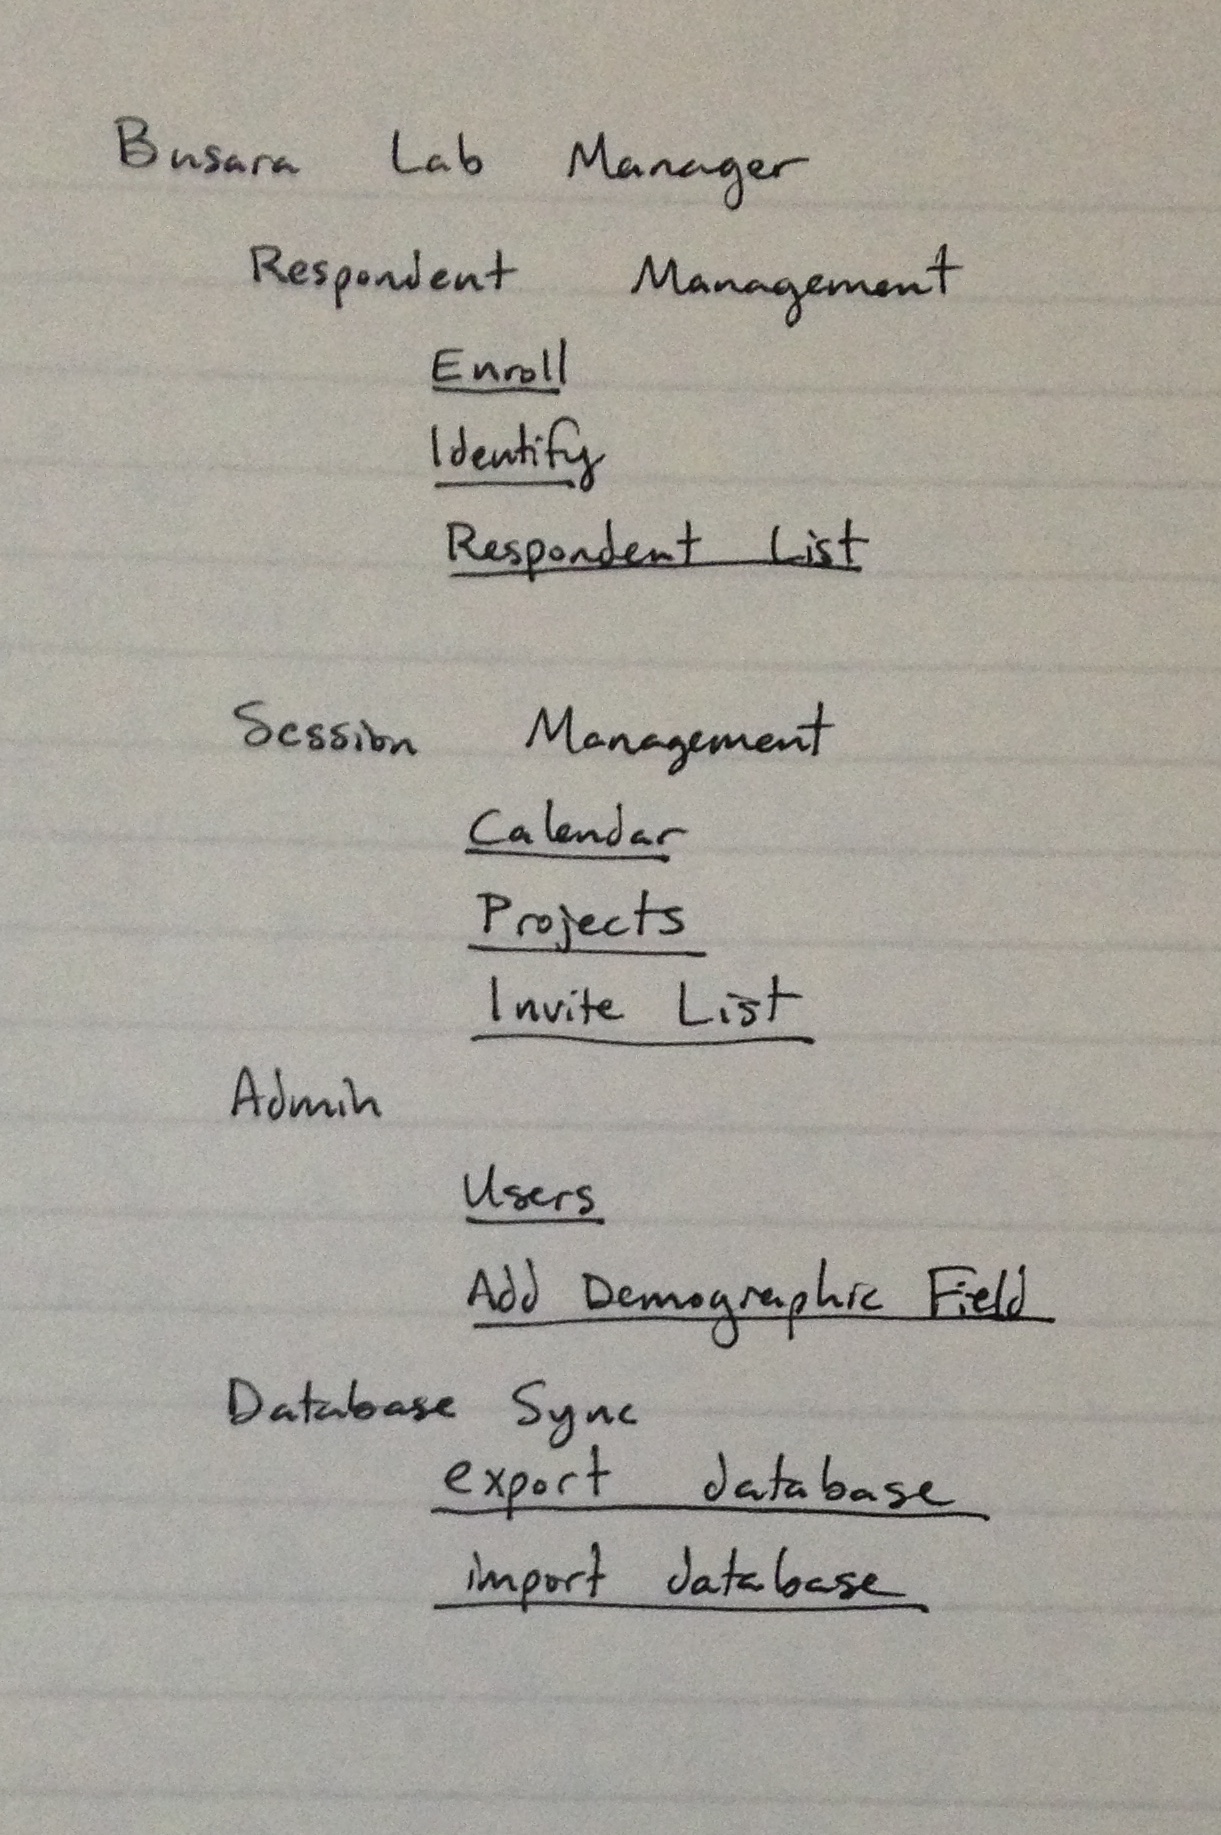 Busara Lab Manager
Respondent Management
Enroll
Identify
Respondent List
Session Management
Calendar
Projects
Invite List
Admin
Users
Add Demographic Field
Database Sync
export database
import database